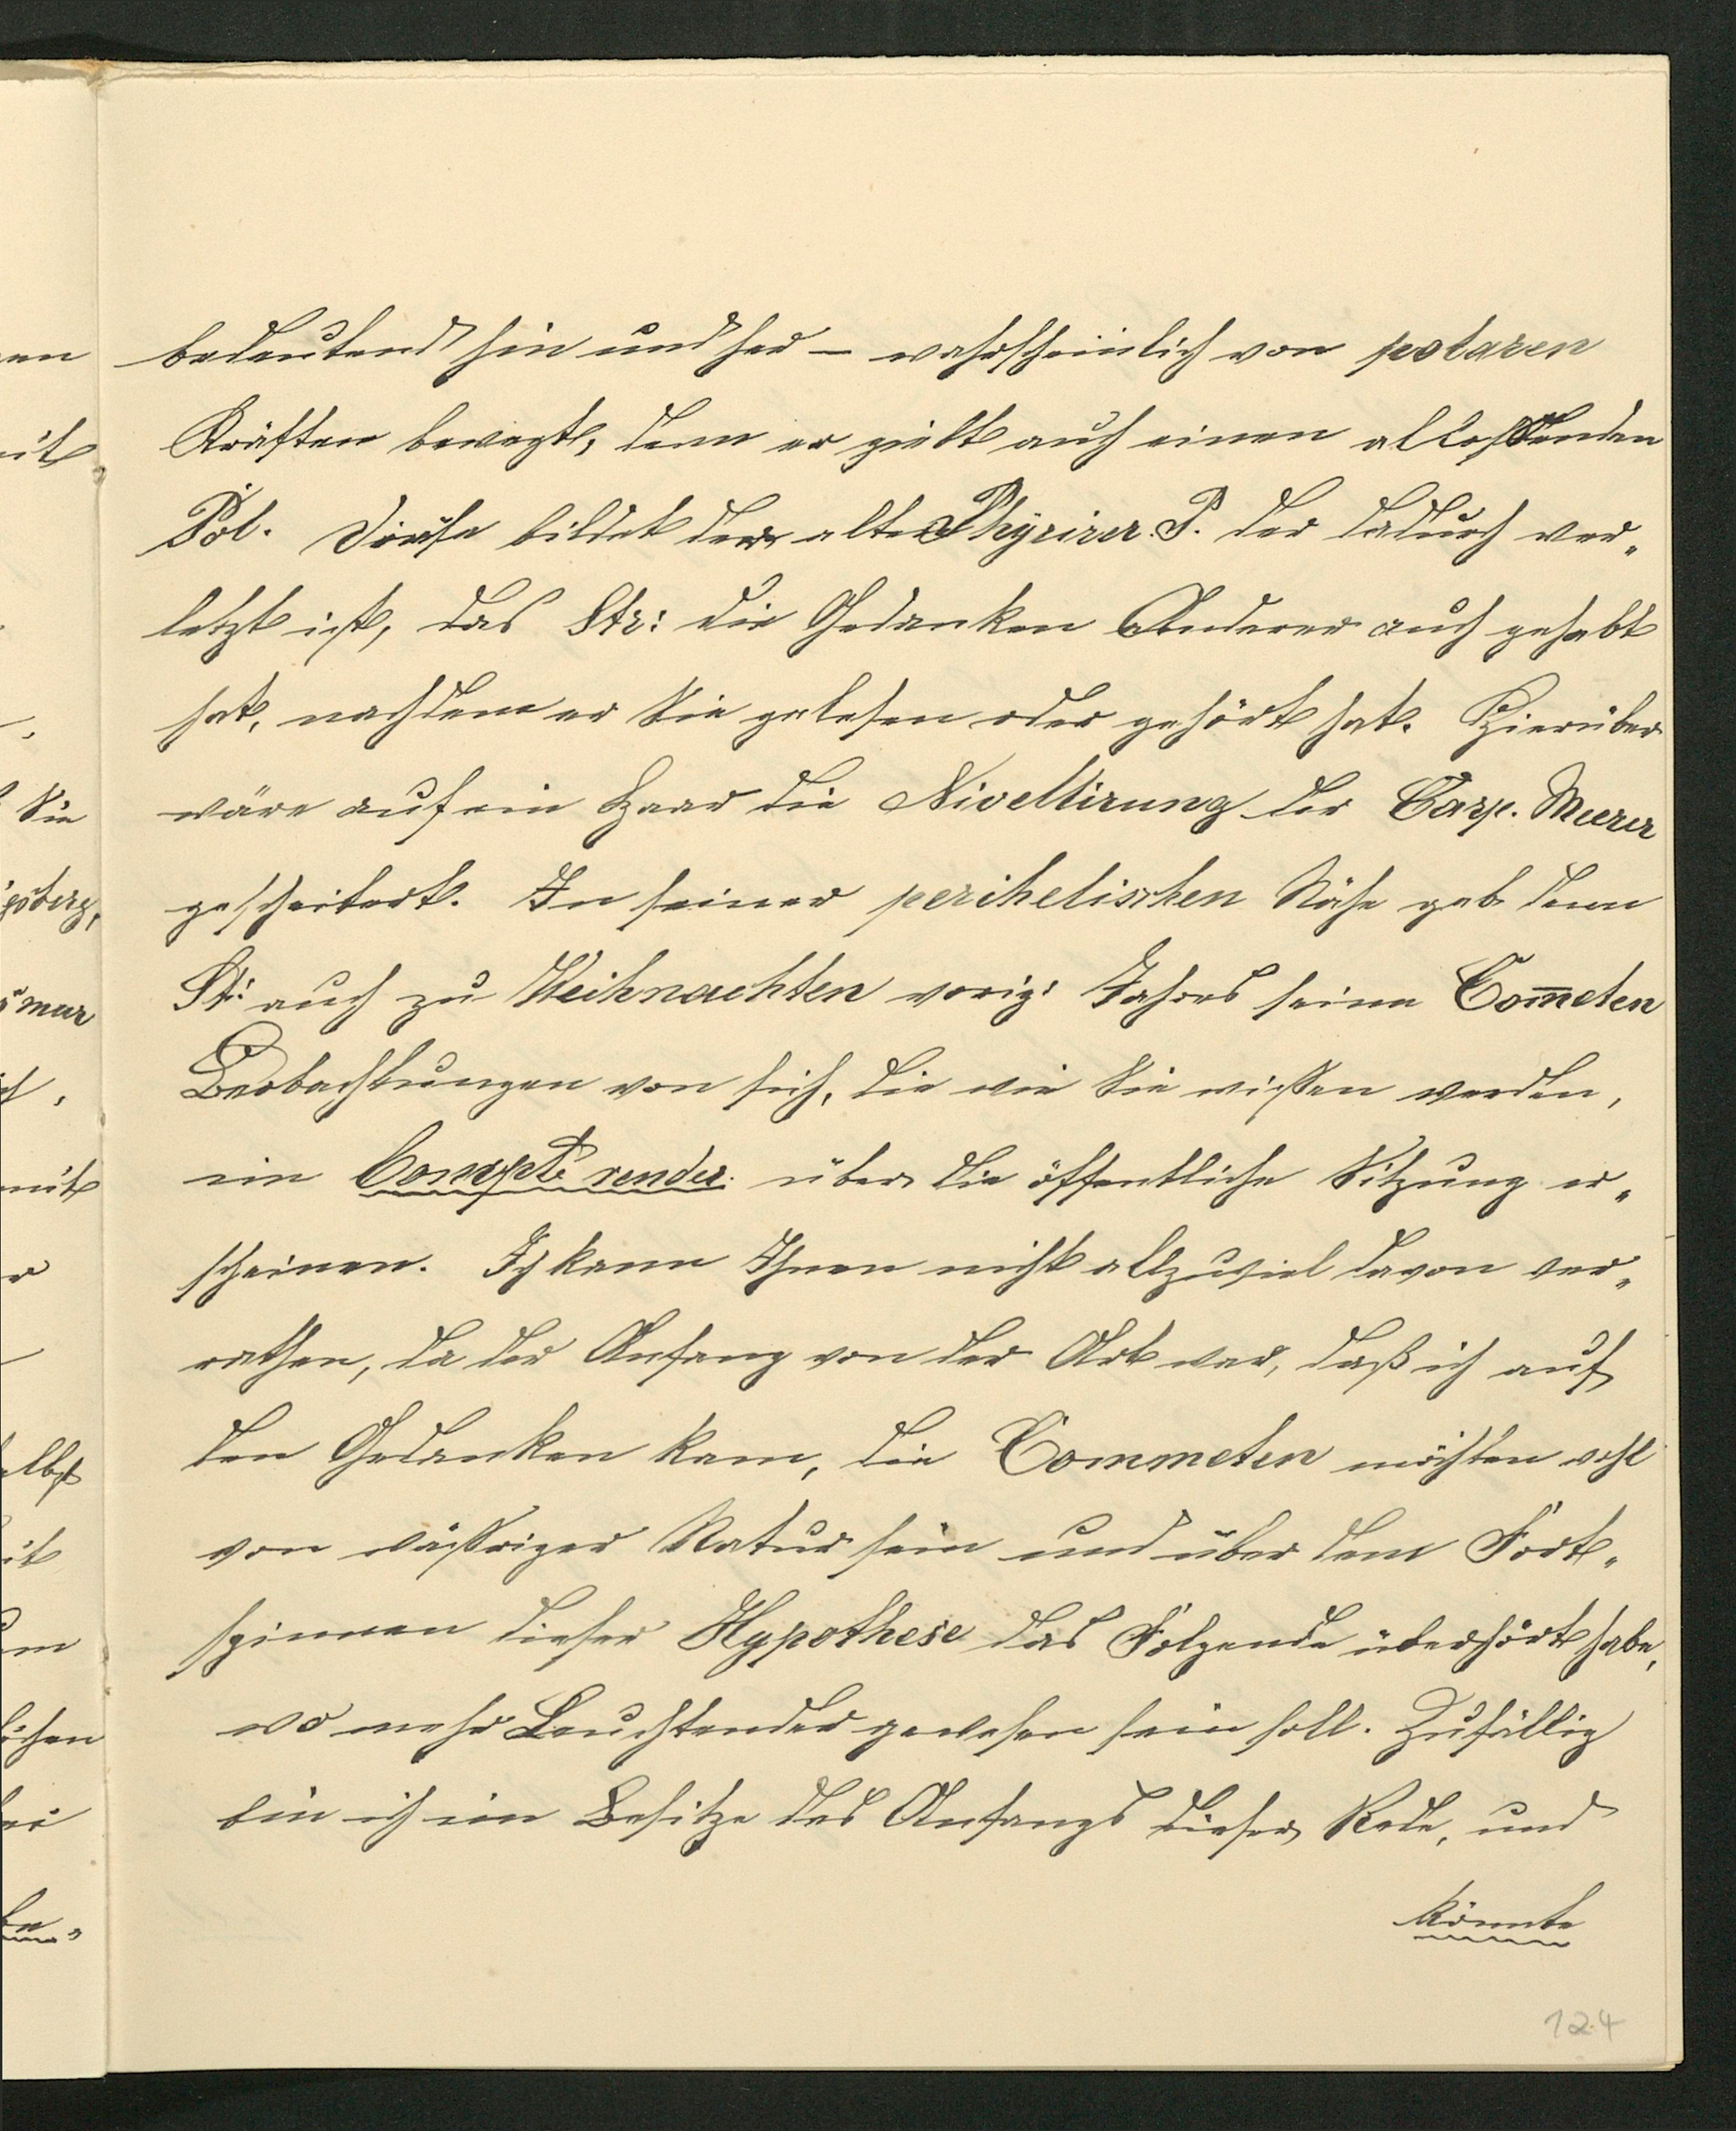 bedeutend hin und her – wahrscheinlich von polaren
Kräften bewegt, denn er giebt auch einen abstoßenden
Pol. Diese bildet der alte Physicer. P. der dadurch ver„
letzt ist, das Str: die Gedanken Anderer auch gehabt
hat, nachdem er Sie gelesen oder gehört hat. Hierüber
wäre auf ein Haar die Nivellirung der Casp. Meeres
gescheitert. In seiner perihelischen Nähe gab denn
St: auch zu Weihnachten vorig: Jahres seine Com̅eten
Beobachtungen von sich, die wie Sie wißen werden,
im Compte rendu. über die öffentliche Sitzung er„
scheinen. Ich kann Ihnen nicht allzuviel davon ver„
rathen, da der Anfang von der Art war, daß ich auf
den Gedanken kam, die Commeten möchten wohl
von wäßriger Natur sein und über dem Fort„
spinnen dieser Hypothese das Folgende überhört habe,
wo mehr Leuchtendes gewesen sein soll. Zufällig
bin ich im Besitze des Anfangs dieser Rede, und
könnte
124